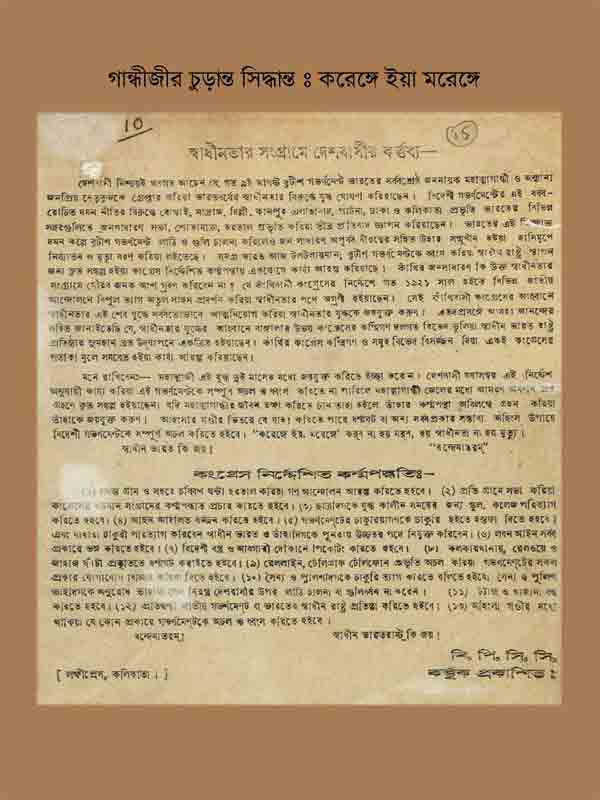 গান্ধীজীর চুড়ান্ত সিদ্ধান্ত ঃ করেঙ্গে ইয়া মরেঙ্গে
10
১৫
স্বাধীনতার সংগ্রামে দেশবাসীর কর্ত্তব্য—
দেশবাসী নিশ্চয়ই অবগত আছেন যে, গত ৯ই আগষ্ট বৃটিশ গভর্ণমেন্ট ভারতের সর্ব্বশ্রেষ্ঠ জননায়ক মহাত্মাগান্ধী ও অন্যান্য
জনপ্রিয় নেতৃবৃন্দকে গ্রেপ্তার করিয়া ভারতবর্ষের স্বাধীনতার বিরুদ্ধে যুদ্ধ ঘোষণা করিয়াছেন। বিদেশী গভর্ণমেন্টের এই বর্ব্ব-
রোচিত দমন নীতির বিরুদ্ধে বোম্বাই, মাদ্রাজ, দিল্লী, কানপুর এলাহাবাদ, পাটনা, ঢাকা ও কলিকাতা প্রভৃতি ভারতের বিভিন্ন
সহরগুলিতে জনসাধারণ সভা, শোভাযাত্রা, হরতাল প্রভৃতি করিয়া তীব্র প্রতিবাদ জ্ঞাপন করিয়াছেন। ভারতের এই
দমন কল্পে বৃটিশ গভর্ণমেন্ট লাঠি ও গুলি চালনা করিলেও জন সাধারণ অপূর্ব্ব বীরত্বের সহিত উহার সম্মুখীন হইয়া হাসিমুখে
নির্য্যাতন ও মৃত্যু বরণ করিয়া লইতেছে। সমগ্র ভারত আজ টলটলায়মান, বৃটিশ গভর্ণমেন্টকে ধ্বংস করিয়া স্বাধীন রাষ্ট্র স্থাপন
জন্য কৃত সঙ্কল্প হইয়া কংগ্রেস নির্দ্দেশিত কর্ম্মপন্থায় একযোগে কার্য্য আরম্ভ করিয়াছে। কাঁথির জনসাধারণ কি উক্ত স্বাধীনতার
সংগ্রামে গৌরব জনক অংশ গ্রহণ করিবেন না? যে কাঁথিবাসী কংগ্রেসের নির্দ্দেশে গত ১৯২১ সাল হইতে বিভিন্ন জাতীয়
আন্দোলনে বিপুল ত্যাগ অতুল সাহস প্রদর্শন করিয়া স্বাধীনতার পথে অগ্রণী হইয়াছেন। সেই কাঁথিবাসী কংগ্রেসের আহ্বানে
স্বাধীনতার এই শেষ যুদ্ধে সর্ব্বতোভাবে আত্মনিয়োগ করিয়া স্বাধীনতার যুদ্ধকে জয়যুক্ত করুন। এতদপ্রসঙ্গে আমরা আনন্দের
সহিত জানাইতেছি যে, স্বাধীনতার যুদ্ধের আহ্বানে বাঙ্গালার উভয় কংগ্রেসের কর্ম্মিগণ দলগত বিভেদ ভুলিয়া স্বাধীন ভারত রাষ্ট্র
প্রতিষ্ঠার সুমহান ব্রত উদ্‌যাপনে একত্রিত হইয়াছেন। কাঁথির কংগ্রেস কর্ম্মিগণ ও সমূহ বিভেদ বিসর্জ্জন দিয়া একই কংগ্রেসের
পতাকা মূলে সমবেত হইয়া কার্য্য আরম্ভ করিয়াছেন।
মনে রাখিবেন:— মহাত্মাজী এই যুদ্ধ দুই মাসের মধ্যে জয়যুক্ত করিতে ইচ্ছা করেন। দেশবাসী যথাসম্ভব এই নির্দ্দেশ
অনুযায়ী কার্য্য করিয়া এই গভর্ণমেন্টকে সম্পূর্ণ অচল ও ধ্বংস করিতে না পারিলে মহাত্মাগান্ধী জেলের মধ্যে আমরণ অনশন ব্রত
গ্রহণে কৃত সঙ্কল্প হইয়াছেন। যদি মহাত্মাগান্ধীর জীবন রক্ষা করিতে চান তাহা হইলে তাঁহার কর্ম্মপন্থা অবিলম্বে গ্রহণ করিয়া
তাঁহাকে জয়যুক্ত করুন। অহিংসার গণ্ডীর ভিতরে যে যাহা করিতে পারে ধর্ম্মঘট বা অন্য সর্ব্বপ্রকার সম্ভাব্য অহিংস উপায়ে
বিদেশী গভর্ণমেন্টকে সম্পূর্ণ অচল করিতে হইবে। "করেঙ্গে ইয়া মরেঙ্গে" করব না হয় মরব, হয় স্বাধীনতা না হয় মৃত্যু।
স্বাধীন ভারত কি জয়! "বন্দেমাতরম্"
কংগ্রেস নির্দ্দেশিত কর্ম্মপদ্ধতি:-
(১) সমস্ত গ্রাম ও সহরে চব্বিশ ঘণ্টা হরতাল করিয়া গণ আন্দোলন আরম্ভ করিতে হইবে। (২) প্রতি গ্রামে সভা করিয়া
কংগ্রেসের বর্ত্তমান সংগ্রামের কর্ম্মপন্থাত প্রচার করিতে হইবে। (৩) ছাত্রদিগকে যুদ্ধ কালীন সময়ের জন্য স্কুল, কলেজ পরিত্যাগ
করিতে হইবে। (৪) আইন আদালত বর্জ্জন করিতে হইবে। (৫) গভর্ণমেন্টের চাকুরিয়াগণকে চাকুরি হইতে ইস্তফা দিতে হইবে।
এবং যাহারা চাকুরী পরিত্যাগ করিবেন স্বাধীন ভারত ও তাঁহাদিগকে পুনরায় উচ্চতর পদে নিযুক্ত করিবেন। (৬) লবণ আইন সর্ব্ব
প্রকারে ভঙ্গ করিতে হইবে। (৭) বিদেশী বস্ত্র ও আবগারী দোকানে পিকেটিং করিতে হইবে। (৮) কলকারখানায়, রেলওয়ে ও
জাহাজ ঘাটা প্রভৃতিতে ধর্ম্মঘট করাইতে হইবে। (৯) রেললাইন, টেলিগ্রাফ টেলিফোন প্রভৃতি অচল করিয়া গভর্ণমেন্টের সকল
প্রকার যোগাযোগ বিচ্ছিন্ন করিয়া দিতে হইবে। (১০) সৈন্য ও পুলিশদিগকে চাকুরি ত্যাগ করিতে বলিতে হইবে, সৈন্য ও পুলিশ
তাহাদিগকে অনুরোধ নিরস্ত্র দেশবাসীর উপর লাঠি চালনা বা গুলিবর্ষণ না করেন। (১১) ট্যাক্স ও খাজনা বন্ধ
করিতে হইবে। (১২) প্রতিদ্বন্দ্বী জাতীয় গভর্ণমেন্ট বা ভারতের স্বাধীন রাষ্ট্র প্রতিষ্ঠা করিতে হইবে। (১৩) অহিংসা গণ্ডীর মধ্যে
থাকিয়া যে কোন প্রকারে গভর্ণমেন্টকে অচল ও ধ্বংস করিতে হইবে।
বন্দেমাতরম্! স্বাধীন ভারতরাষ্ট্র কি জয়!
বি, পি, সি, সি,
[ লক্ষ্মীপ্রেস, কলিকাতা। কর্ত্তৃক প্রকাশিত: